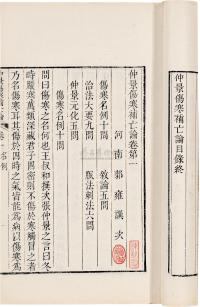 仲景傷寒補亡論目錄終
仲景傷寒補亡論卷第一
河南郭雍撰次
傷寒名例十問
敘論五問
治法大要九問
脉法刺法六問
仲景元化五問
傷寒名例十問
問曰傷寒之名何也王叔和撰次張仲景之言曰冬
時嚴寒萬類深藏君子固密則不傷於寒觸冒之者
乃名傷寒耳其傷於四時之氣皆能為病以傷寒為